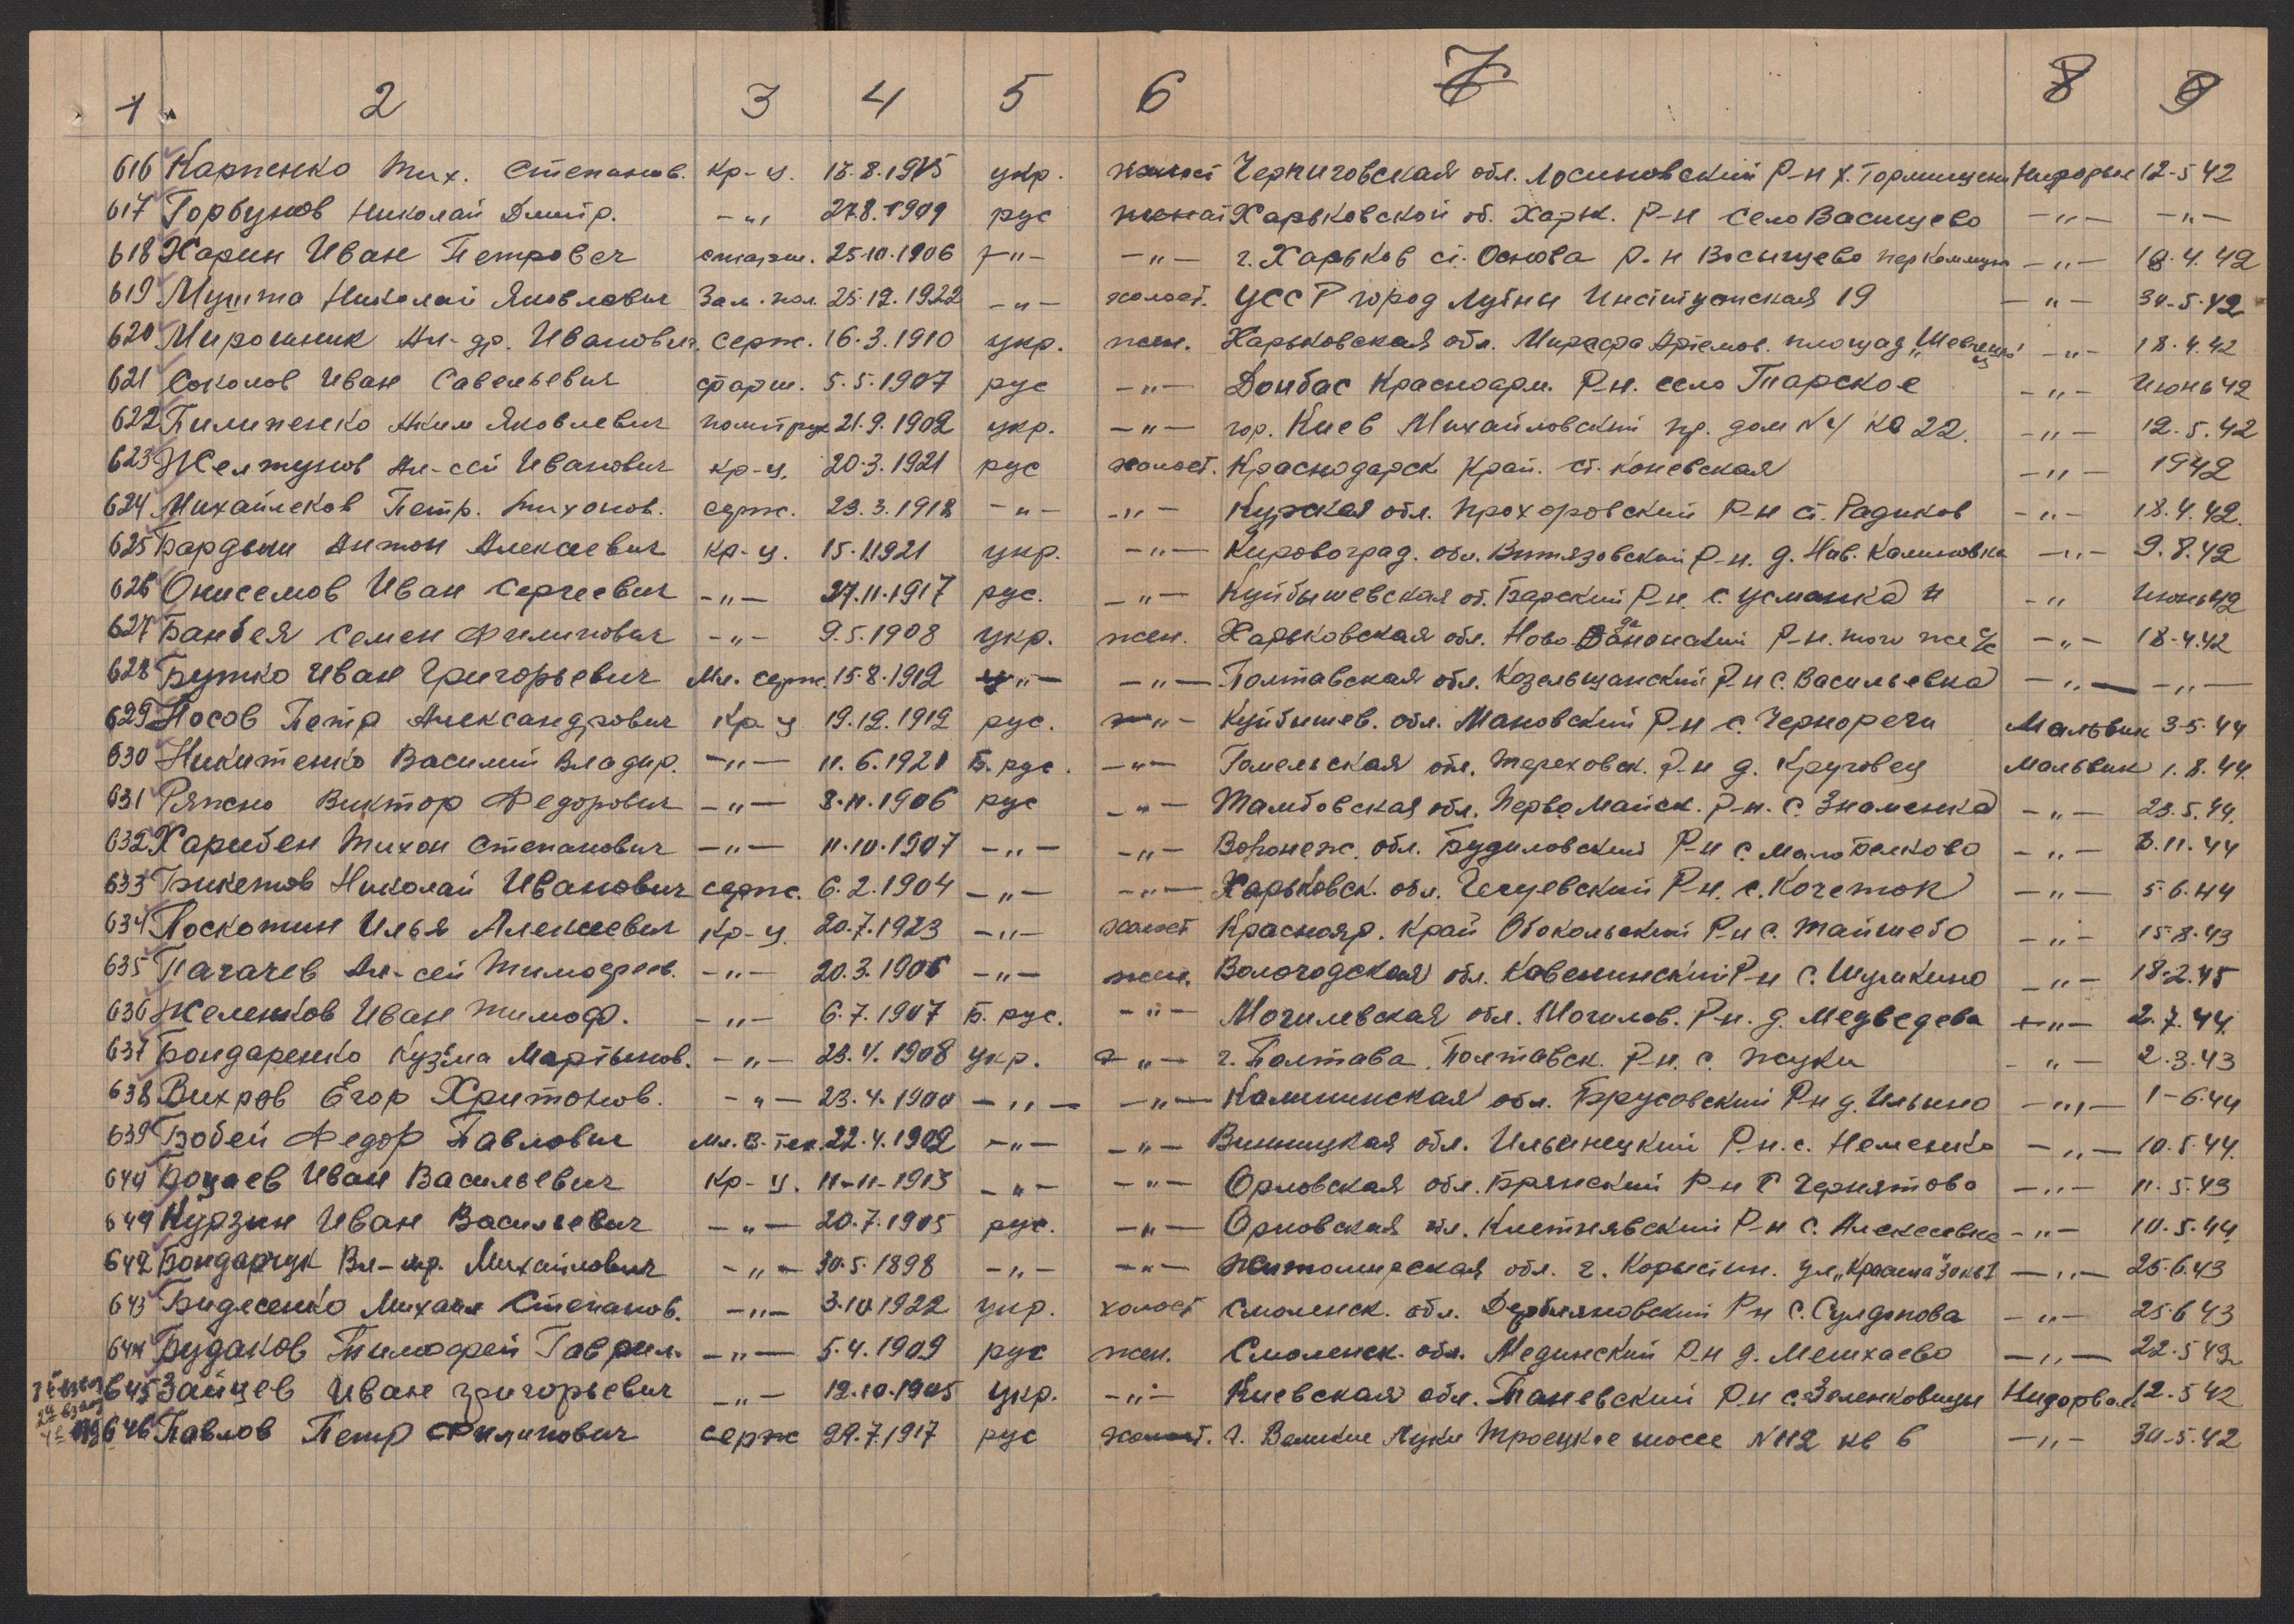 1 2 3 4 5 6 7 8 9
616 Карпенко Тих. Степанов. кр-ц. 15.8.1915 укр. холост Черниговская обл. Лосиновский Р-н х. 12-5 42
617 Горбунов Николай Дмитр. -"- 27.8.1909 рус женат Харьковской об. Харьк. Р-н село Васищево -"- -"-
618 Харин Иван Петрович старш. 25.10.1906 -"- -"- г. Харьков ст. Основа Р-н Восыщево -"- 18.4.42
619 Мушта Николай Яковлевич Зам. пол. 25.12.1922 -"- холост. УССР город Лубны Институтская 19 -"- 30-5.42
620 Мирошник Ал-др. Иванович. серж. 16.3.1910 укр. жен. Харьковская обл. площад -"- 18.4.42
621 Соколов Иван Савельевич старш. 5.5.1907 рус -"- Донбас Красноарм. Р-н. село Гнарское -"- Июнь 42
622 Пилипенко Аким Яковлевич политрук 21.9.1902 укр. -"- гор. Киев Михайловский пр. дом №4 кв 22. -"- 12.5.42
623 Желтунов Ал-сей Иванович кр-ц. 20.3.1921 рус холост. Краснодарск Край. ст. Коневская -"- 1942
624 Михайлеков Петр. Тихонов. серж. 23.3.1918 -"- -"- Курская обл. Прохоровский Р-н ст. Радиков -"- 18.4.42.
625 Антон Алексеевич кр-ц. 15.1.1921 укр. -"- Кировоград. обл. Витязовский Р-н. д. Нов. Калиновка -"- 9.8.42
626 Онисемов Иван Сергеевич -"- 27.11.1917 рус. -"- Куйбышевская об. Барский Р-н. с. Усманка -"- Июнь 42
627 Банбея Семен Филипович -"- 9.5.1908 укр. жен. Харьковская обл. Ново Р-н. того же с/с -"- 18-4.42
628 Бутко Иван Григорьевич Мл. серж. 15.8.1912 -"- -"- Полтавская обл. Козельщанский Р-н с. Васильевка -"- -"-
629 Носов Петр Александрович Кр-ц 19.12.1912 рус. -"- Куйбышев. обл. Мановский Р-н с. Чернореги Мальвик 3-5.44
630 Никитенко Василий Владир. -"- 11.6.1921 Б. рус. -"- Гомельская обл. Тереховск. Р-н д. Круговец Мальвик 1.8.44.
631 Ряжено Виктор Федорович -"- 8.11.1906 рус -"- Тамбовская обл. Перво Майск. Р-н. с. Знаменка -"- 23.5.44.
632 Харибен Тихон Степанович -"- 11.10.1907 -"- -"- Воронеж. обл. Будиловский Р-н с. Мало Белково -"- 8.11.44
633 Брикетов Николай Иванович серж. 6.2.1904 -"- -"- Харьковск. обл. Чугуевский Р-н. с. Кочеток -"- 5.6.44
634 Поскотин Илья Алексеевич кр-ц. 20.7.1923 -"- холост Краснояр. Край Обокольский Р-н с. Тайшебо -"- 15.8.43
635 Пагачев Ал-сей Тимофеев. -"- 20.3.1906 -"- жен. Вологодская обл. Р-н с. Шулькино -"- 18.2.45
636 Желенков Иван Тимоф. -"- 6.7.1907 Б. рус. -"- Могилевская обл. Могилов. Р-н. д. Медведева -"- 2.7.44.
637 Бондаренко Кузьма Мартынов. -"- 23.4.1908 укр. -"- г. Полтава. Полтавск. Р-н. с. Жуки -"- 2.3.43
638 Вихров Егор Харитонов. -"- 23.4.1900 -"- -"- Калининская обл. Брусовский Р-н д. Ильино -"- 1-6.44
639 Бобей Федор Павлович мл. в.-тех. 22.4.1902 -"- -"- Винницкая обл. Ильинецкий Р-н. с. Неменка -"- 10.5.44.
640 Боцаев Иван Васильевич Кр-ц. 11-11-1913 -"- -"- Орловская обл. Брянский Р-н с Чернятово -"- 11.5.43
641 Курзин Иван Васильевич -"- 20.7.1905 рус. -"- Орловская обл. Клетнявский Р-н с. Алексеевка -"- 10.5.44
642 Бондарчук Вл-мр. Михайлович -"- 30.5.1898 -"- -"- Житомирская обл. г. Коростин. ул. -"- 25.6.43
643 Бидесенко Михаил Степанов. -"- 3.10.1922 укр. холост Смоленск. обл. Р-н с. -"- 25.6 43
644 Будаков Тимофей Гаврил. -"- 5.4.1909 рус жен. Смоленск. обл. Мединский Р-н д. Мешхаево -"- 22.5 42
645 Зайцев Иван Григорьевич -"- 12.10.1905 укр. -"- Киевская обл. Таневский Р-н с. Зеленковицы Нидорвал 12.5 42
646 Павлов Петр Филипович серж 29.7.1917 рус холост. г. Великие Луки Троецкое шоссе №112 кв 6 -"- 30-5.42